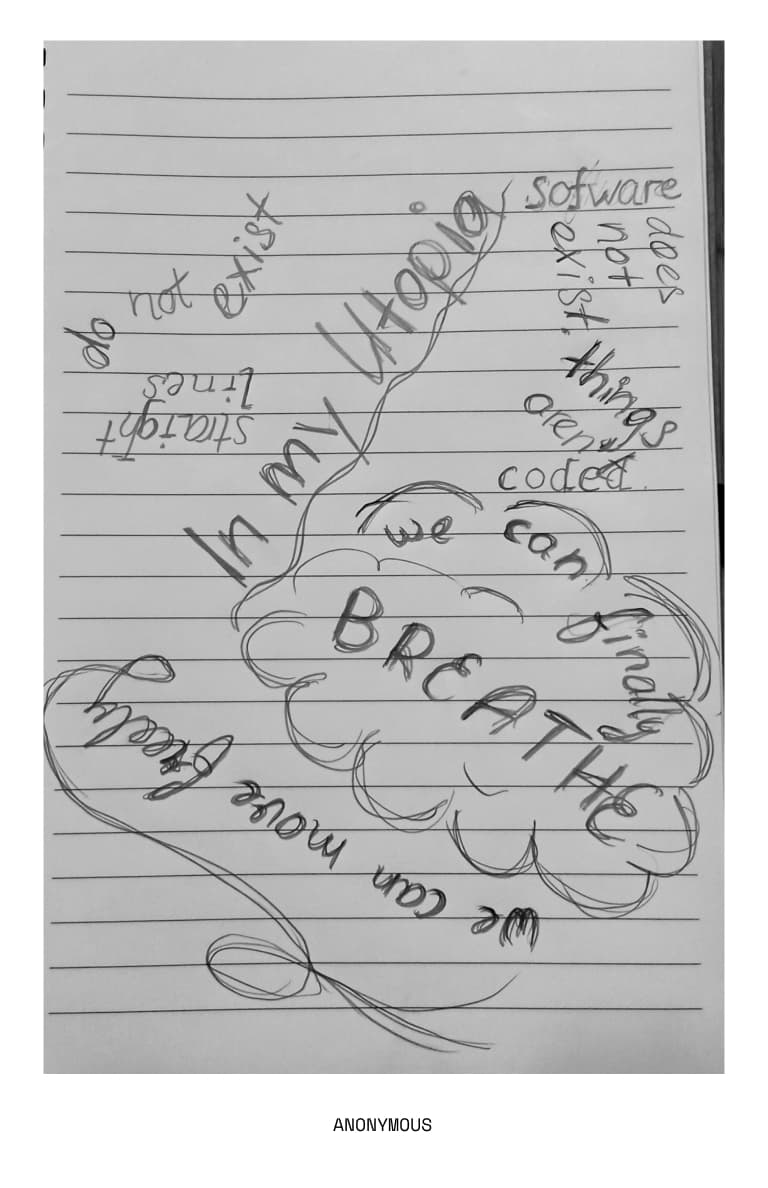 In my Utopia
straight
lines
do not exist
sofware
does
not
exist.
things
arent
coded.
we can finally
BREATHE
we can move freely
ANONYMOUS